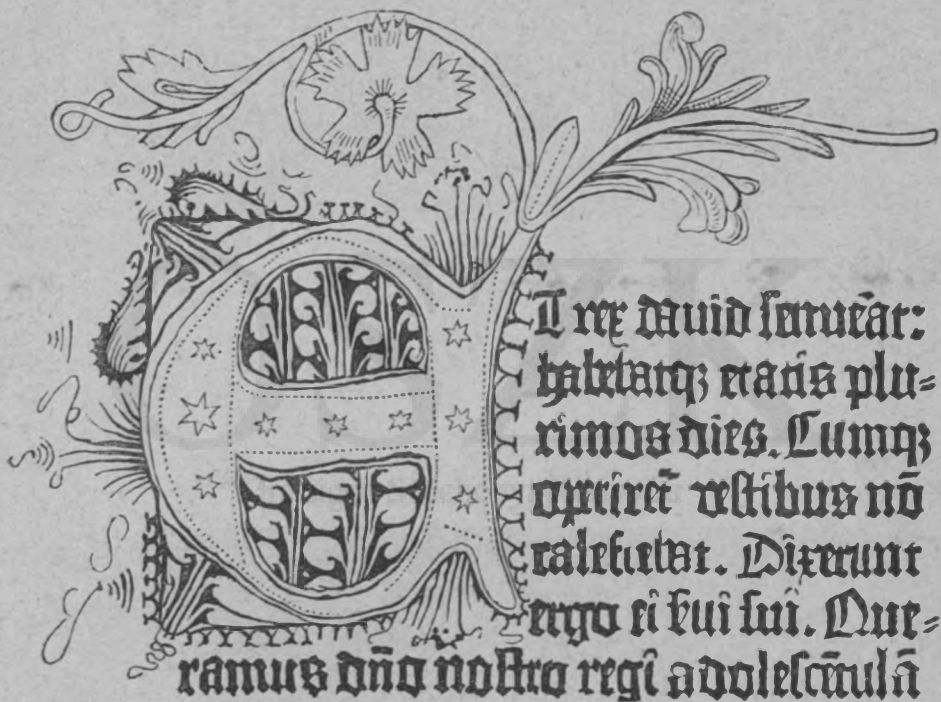 ET rex dauid senuerat:
habebatqʒ etatis plu=
rimos dies. Cumqʒ
operiret᷑ vestibus nō
calefiebat. Dixerunt
ergo ei ẜui sui. Que=
ramus dño nostro regi adolescētulā